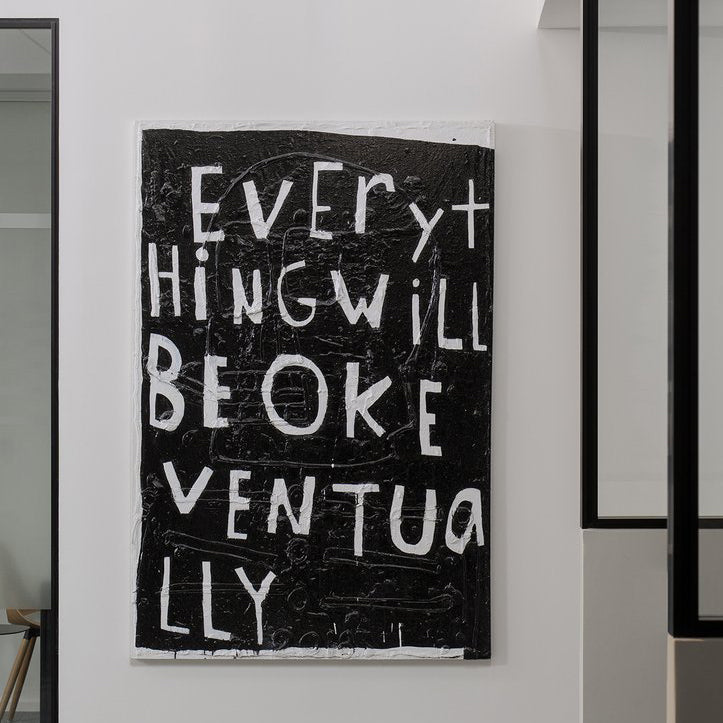 EVEryt
HiNGWiLL
BEOKE
VENTUa
LLY